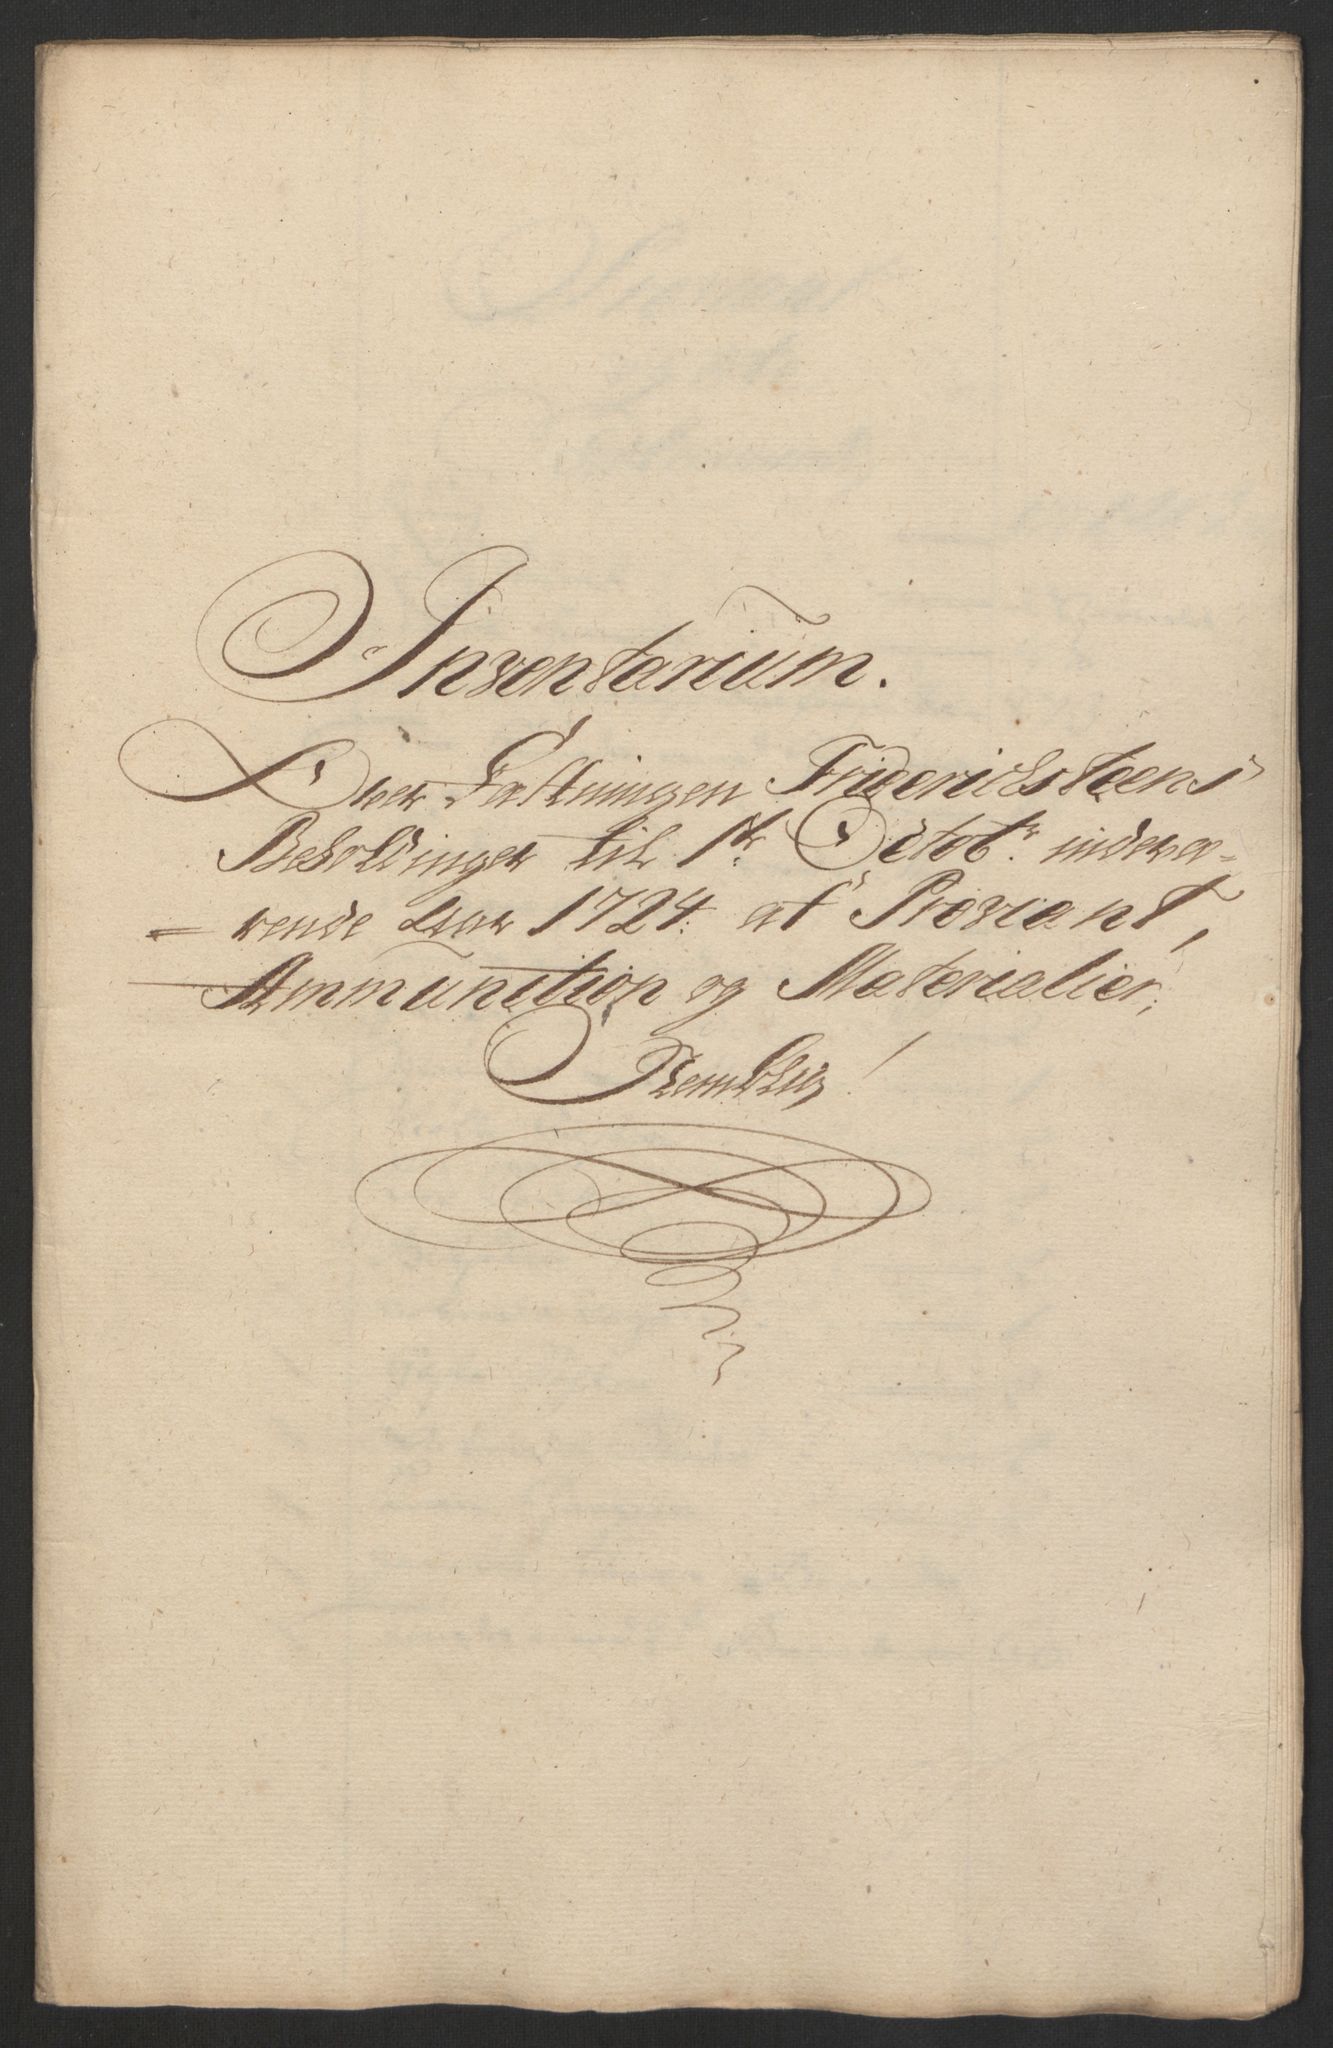 Inventarium.
Over Fæstningen Fridrichsteens
Beholdinger til 1te Octobr. indevæ-
=rende Aar 1724. af Proviant,
Ammunition og Materialier,
Nemblig!